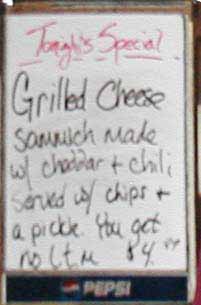 Tonight's Special
Grilled Cheese
Sandwich made
w/ cheddar + chili
served w/ chips +
a pickle. You get
$4.
PEPSI